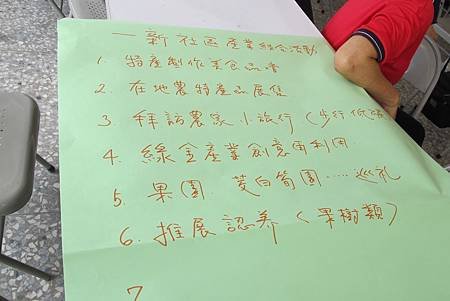 一新社區產業組合活動
1. 特產製作美食品香
2. 在地農特產品展售
3. 拜訪農家小旅行(步行低碳
4. 綠金產業創意再利用
5. 果園 茭白筍園.....巡礼
6. 推展認养(果樹類)
7